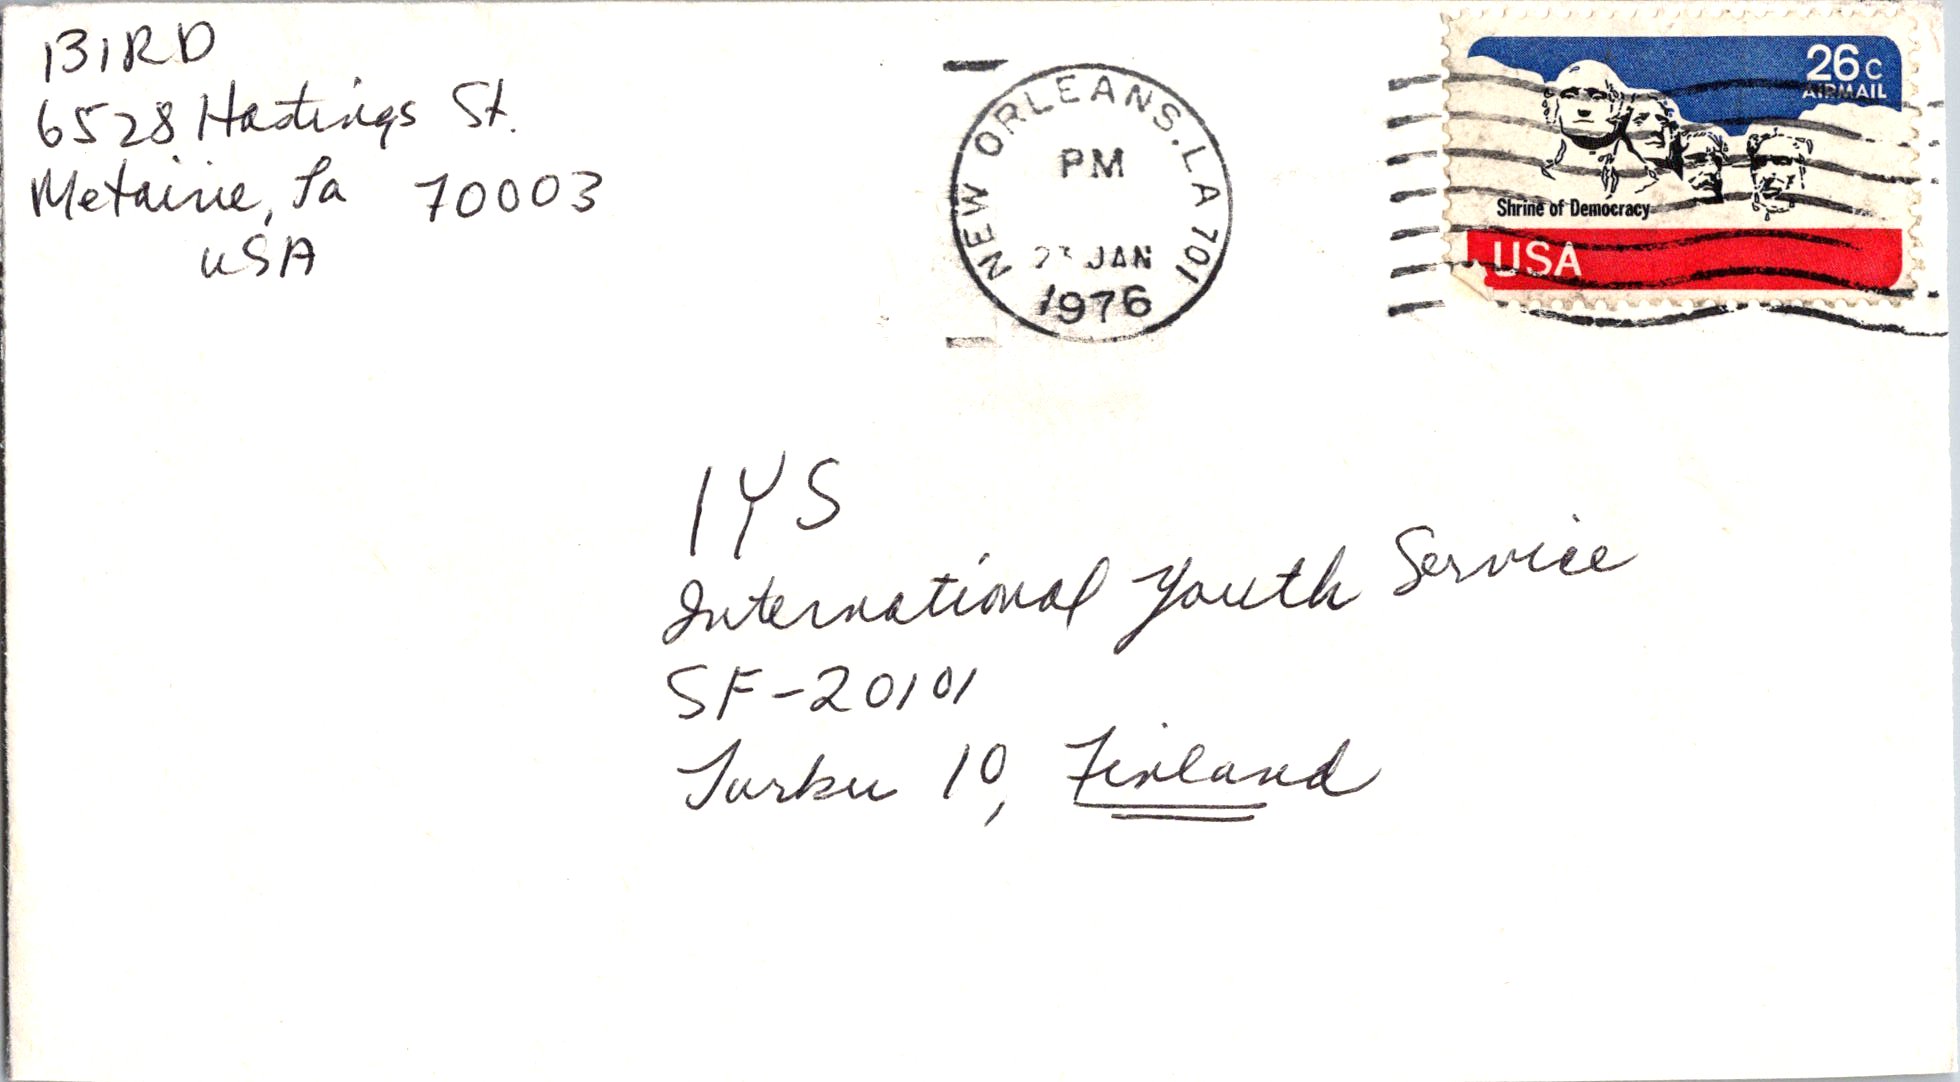 BIRD
6528 Hastings St.
Metairie, La 70003
USA
NEW ORLEANS, LA 701
PM
JAN
1976
26c
AIRMAIL
Shrine of Democracy
USA
IYS
International Youth Service
SF-20101
Turku 10, Finland